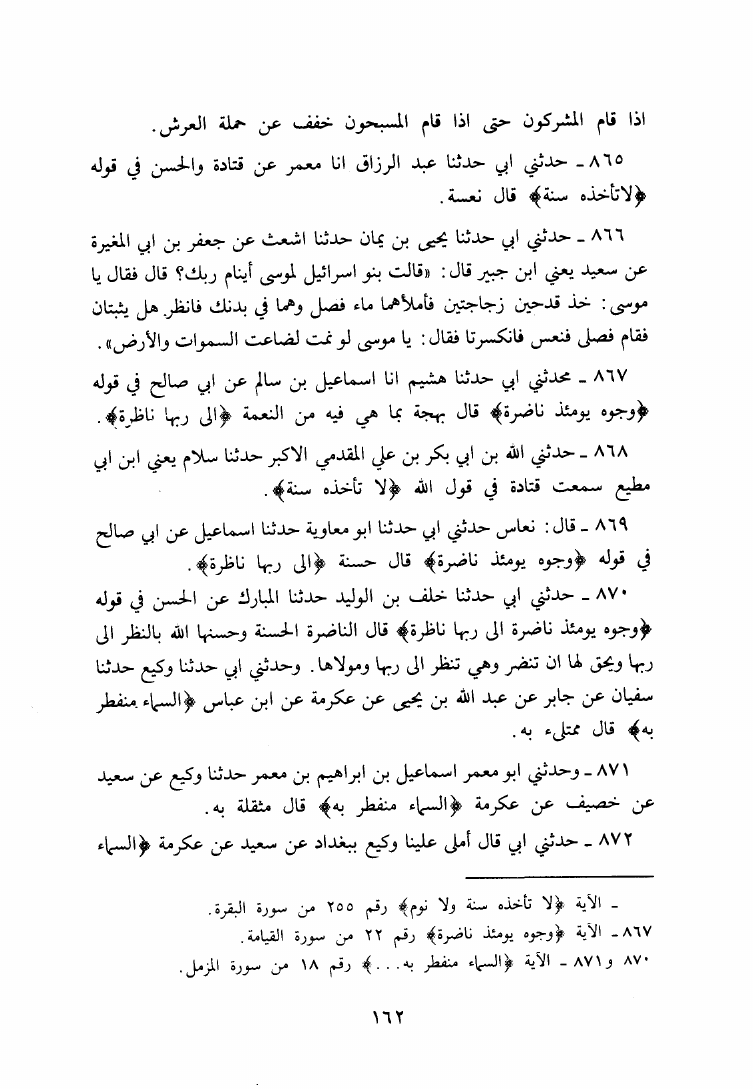 اذا قام المشركون حتى اذا قام المسبحون خفف عن حملة العرش.
٨٦٥ ـ حدثني ابي حدثنا عبد الرزاق انا معمر عن قتادة والحسن في قوله
﴿لاتأخذه سنة﴾ قال نعسة.
٨٦٦ ـ حدثني ابي حدثنا يحيى بن يمان حدثنا اشعث عن جعفر بن ابي المغيرة
عن سعيد يعني ابن جبير قال: «قالت بنو اسرائيل لموسى أينام ربك؟ قال فقال يا
موسى: خذ قدحين زجاجتين فأملأهما ماء فصل وهما في بدنك فانظر هل يثبتان
فقام فصلى فنعس فانكسرتا فقال: يا موسى لو نمت لضاعت السموات والأرض».
٨٦٧ ـ محدثني ابي حدثنا هشيم انا اسماعيل بن سالم عن ابي صالح في قوله
﴿وجوه يومئذ ناضرة﴾ قال بهجة بما هي فيه من النعمة ﴿الى ربها ناظرة﴾.
٨٦٨ ـ حدثني الله بن ابي بكر بن علي المقدمي الاكبر حدثنا سلام يعني ابن ابي
مطيع سمعت قتادة في قول الله ﴿لا تأخذه سنة﴾.
٨٦٩ ـ قال: نعاس حدثني ابي حدثنا ابو معاوية حدثنا اسماعيل عن ابي صالح
في قوله ﴿وجوه يومئذ ناضرة﴾ قال حسنة ﴿الى ربها ناظرة﴾.
٨٧٠ ـ حدثني ابي حدثنا خلف بن الوليد حدثنا المبارك عن الحسن في قوله
﴿وجوه يومئذ ناضرة الى ربها ناظرة﴾ قال الناضرة الحسنة وحسنها الله بالنظر الى
ربها ويحق لها ان تنضر وهي تنظر الى ربها ومولاها. وحدثني ابي حدثنا وكيع حدثنا
سفيان عن جابر عن عبد الله بن يحيى عن عكرمة عن ابن عباس ﴿السماء منفطر
به﴾ قال ممتلىء به.
٨٧١ ـ وحدثني ابو معمر اسماعيل بن ابراهيم بن معمر حدثنا وكيع عن سعيد
عن خصيف عن عكرمة ﴿السماء منفطر به﴾ قال مثقلة به.
٨٧٢ ـ حدثني ابي قال أملى علينا وكيع ببغداد عن سعيد عن عكرمة ﴿السماء
ـ الآية ﴿لا تأخذه سنة ولا نوم﴾ رقم ٢٥٥ من سورة البقرة.
٨٦٧ ـ الآية ﴿وجوه يومئذ ناضرة﴾ رقم ٢٢ من سورة القيامة.
٨٧٠ و٨٧١ ـ الآية ﴿السماء منفطر به...﴾ رقم ١٨ من سورة المزمل.
١٦٢